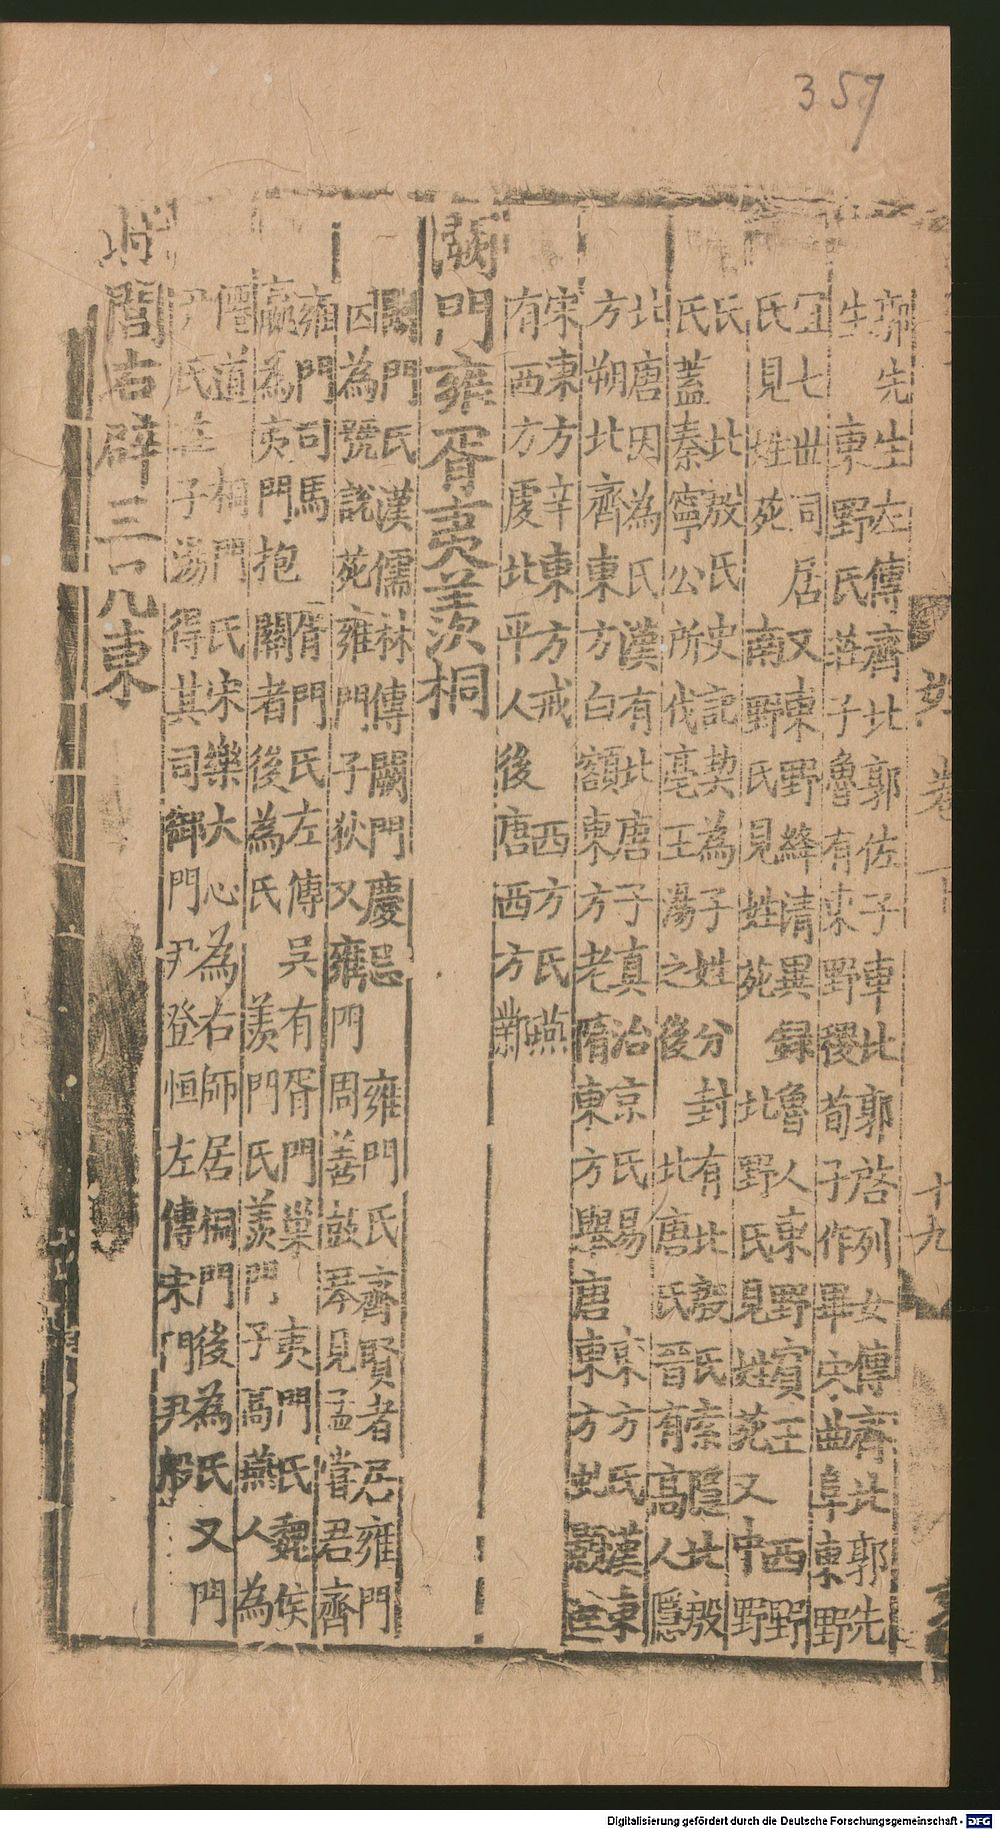 357
郭先生左傳齊北郭佐子車北郭啓列女傳齊北郭先
生 東野氏莊子魯有東野稷荀子作畢 曲阜東野
宜七世同居又東野絳清異録魯人東野賓王 西野
氏見姓苑 南野氏見姓苑 北野氏見姓苑又中野
氏 北殷氏史記契為子姓分封有北殷氏索隱北殷
氏蓋秦寧公所伐亳王湯之後 北唐氏晉有高人隱
北唐因為氏漢有北唐子真治京氏易 東方氏漢東
方朔北齊東方白額東方老隋東方舉唐東方虬顥
宋東方辛東方戒 西方氏燕
有西方虔北平人後唐西方鄴
闕門雍胥夷羨桐
闕門氏漢儒林傳闕門慶忌 雍門氏齊賢者居雍門
因為號說苑雍門子狄又雍門周善鼓琴見孟嘗君齊
雍門司馬 胥門氏左傳吳有胥門巢 夷門氏魏侯
嬴為夷門抱關者後為氏 羨門氏羨門子高燕人為
僊道 桐門氏宋樂大心為右師居桐門後為氏又門
尹氏莊子湯得其司御門尹登恒左傳宋門尹般
閭右辟三尸凡東
卷下
十九
Digitalisierung gefördert durch die Deutsche Forschungsgemeinschaft - DFG